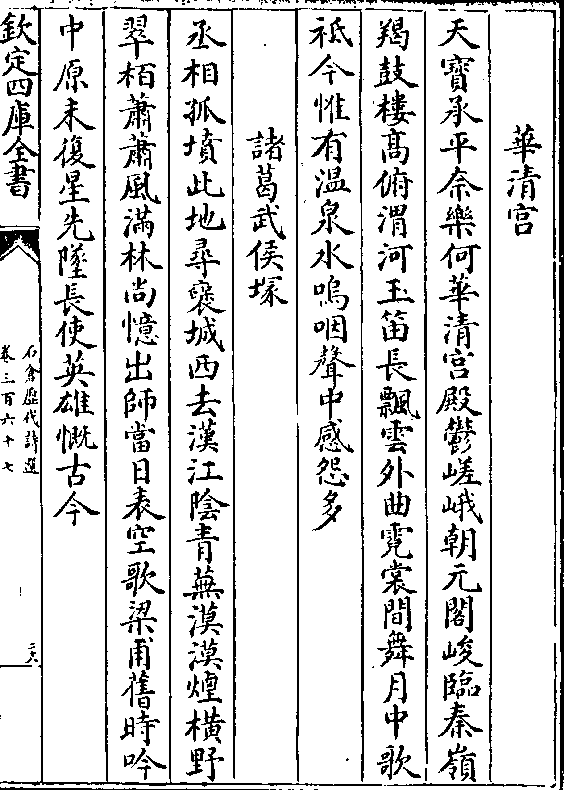 華清宫
天寳承平奈樂何華清宫殿鬱嵯峨朝元閣峻臨秦嶺
羯鼓樓髙俯渭河玉笛長飄雲外曲霓裳間舞月中歌
祗今惟有温泉水嗚咽聲中感怨多
諸葛武侯塚
丞相孤墳此地尋襃城西去漢江陰青蕪漠漠煙横野
翠栢蕭蕭風滿林尚憶出師當日表空歌梁甫舊時吟
中原未復星先墜長使英雄慨古今
欽定四庫全書
石倉歴代詩選
卷三百六十七
三六